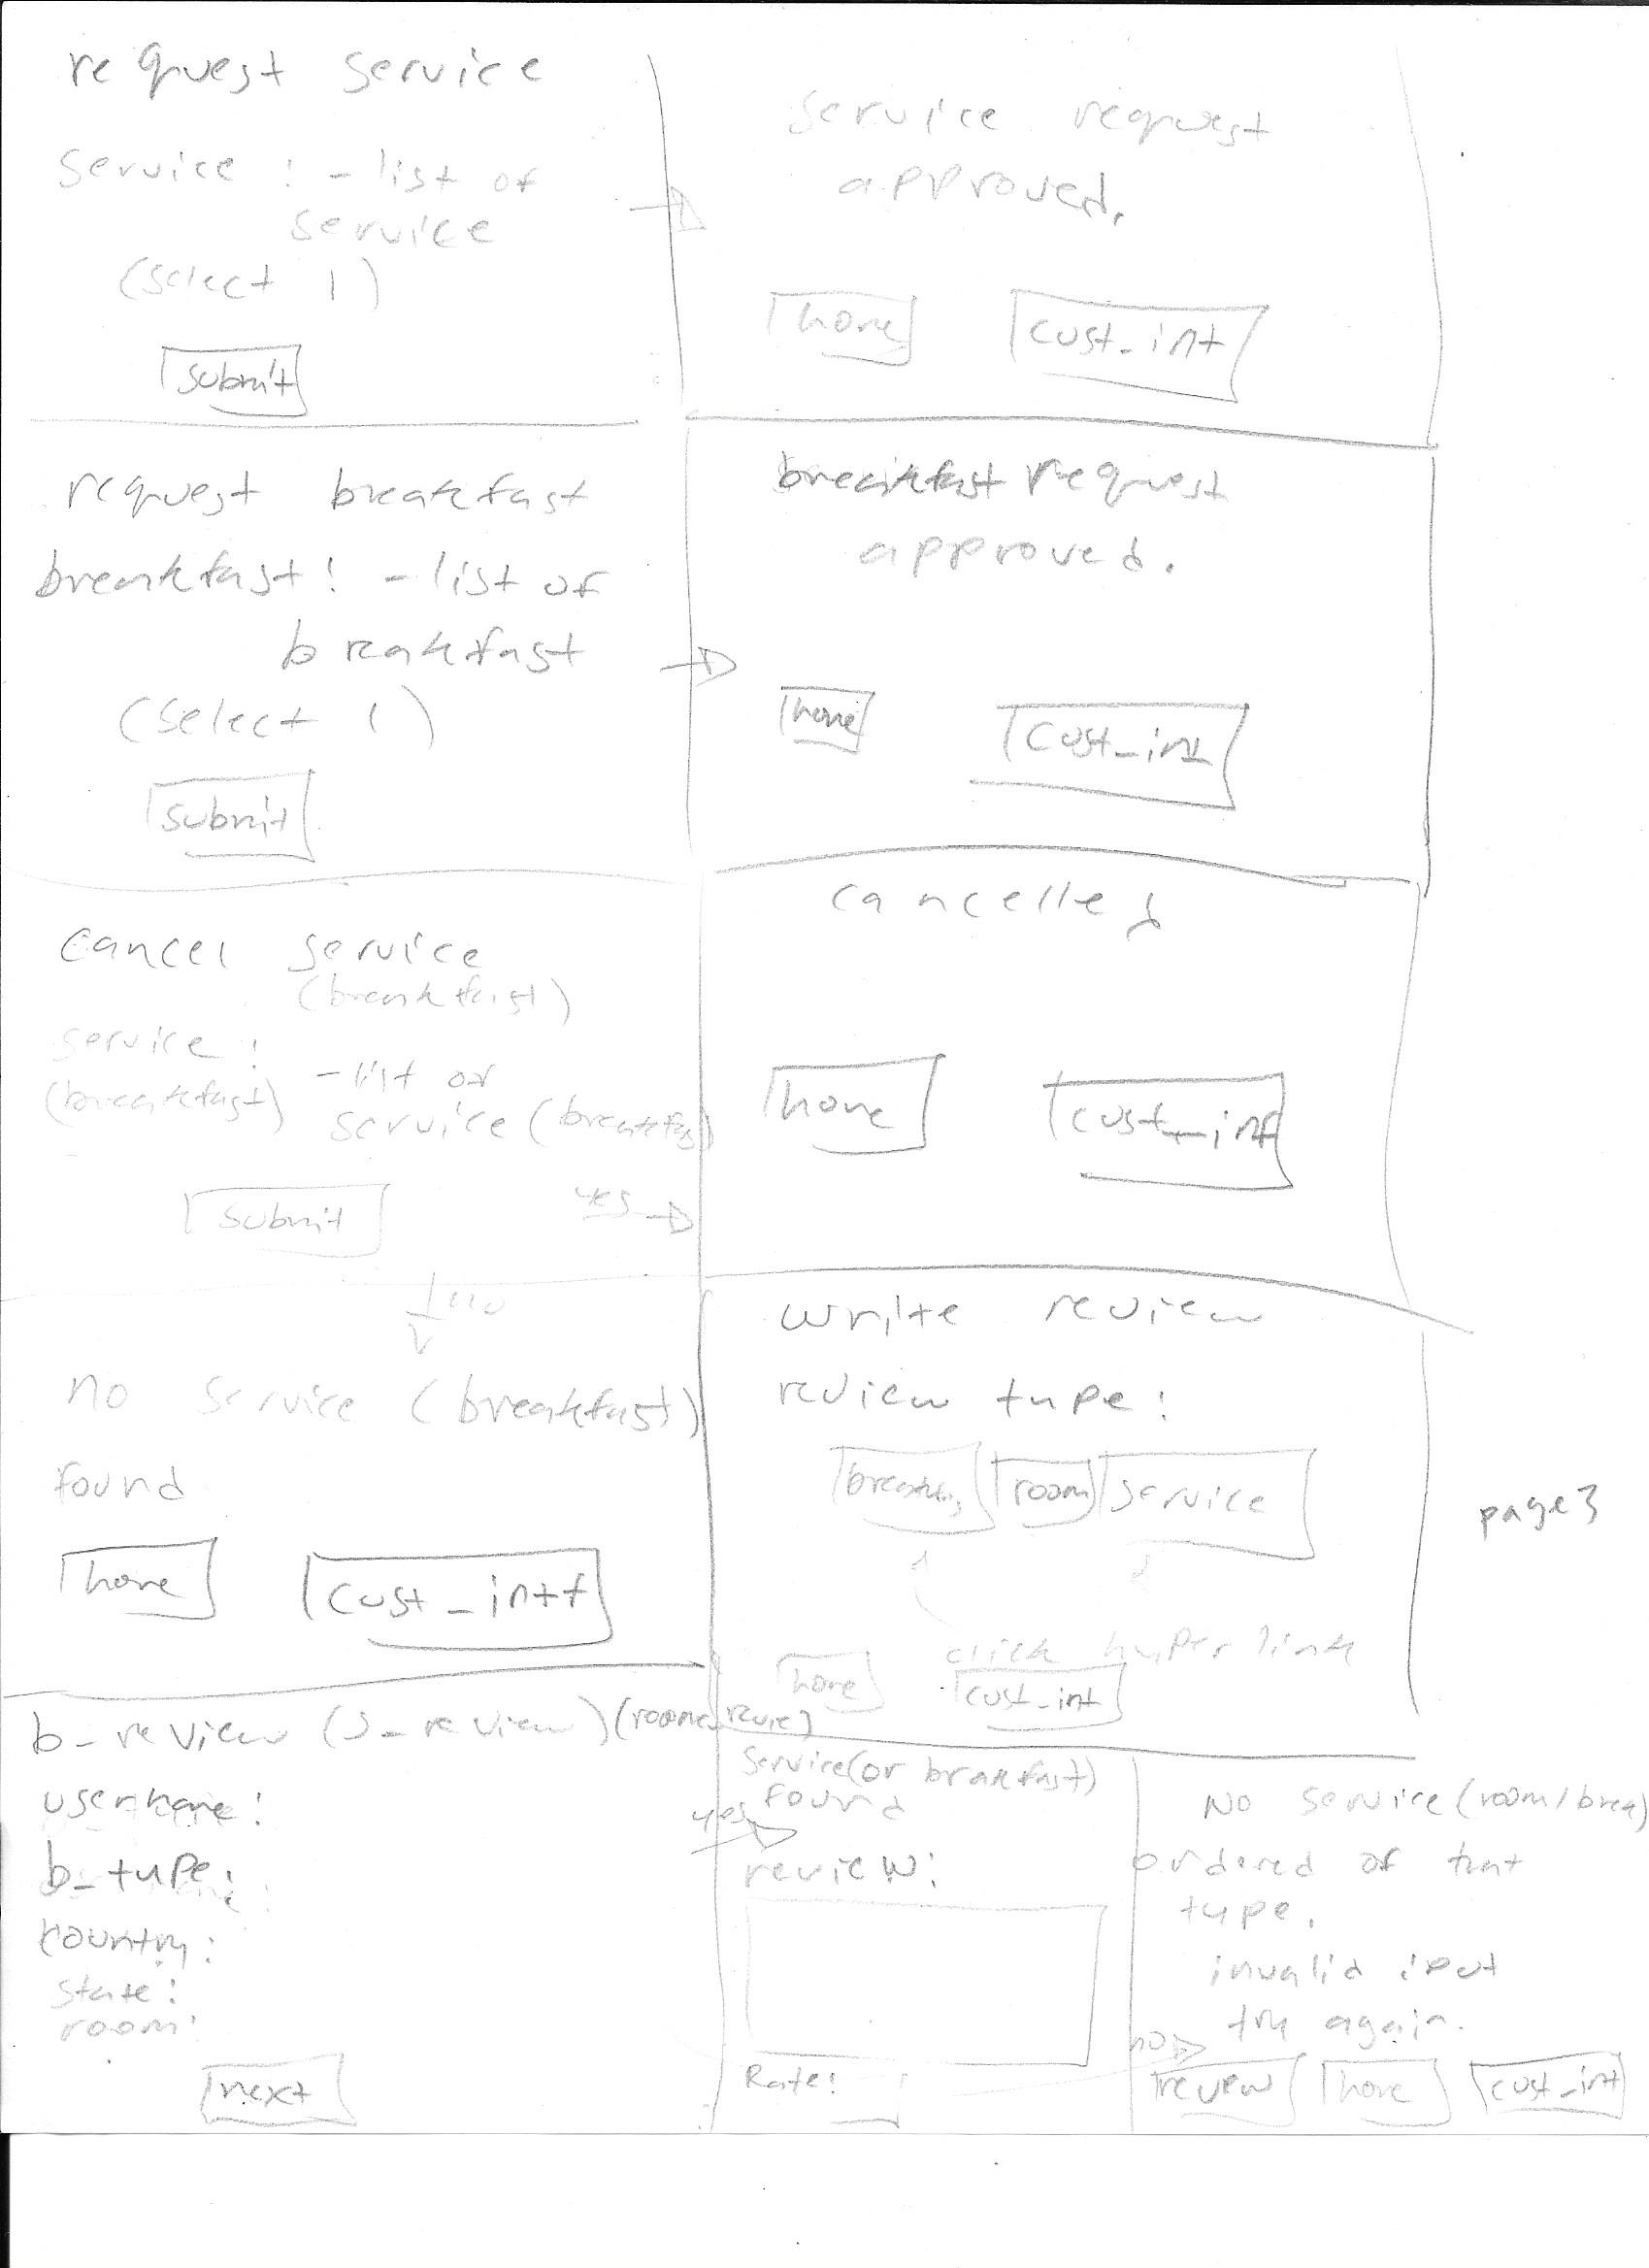 request service
service : - list of
service
(select 1)
submit
service request
approved.
home
cust_int
request breakfast
breakfast: - list of
breakfast
(select 1)
submit
breakfast request
approved.
home
cust_int
cancel service
(breakfast)
service :
(breakfast) - list of
service (breakfast)
submit
yes
no
cancelled
home
cust_int
no service (breakfast)
found
home
cust_intf
write review
review type:
breakfas room service
click hyper link
home cust_int
page 3
b_review (s_review) (room_revie)
username:
b_type:
country:
state:
room:
next
yes
service (or breakfast)
found
review:
Rate:
no
No service (room/brea)
ordered of that
type.
invalid iput
try again.
review home cust_int